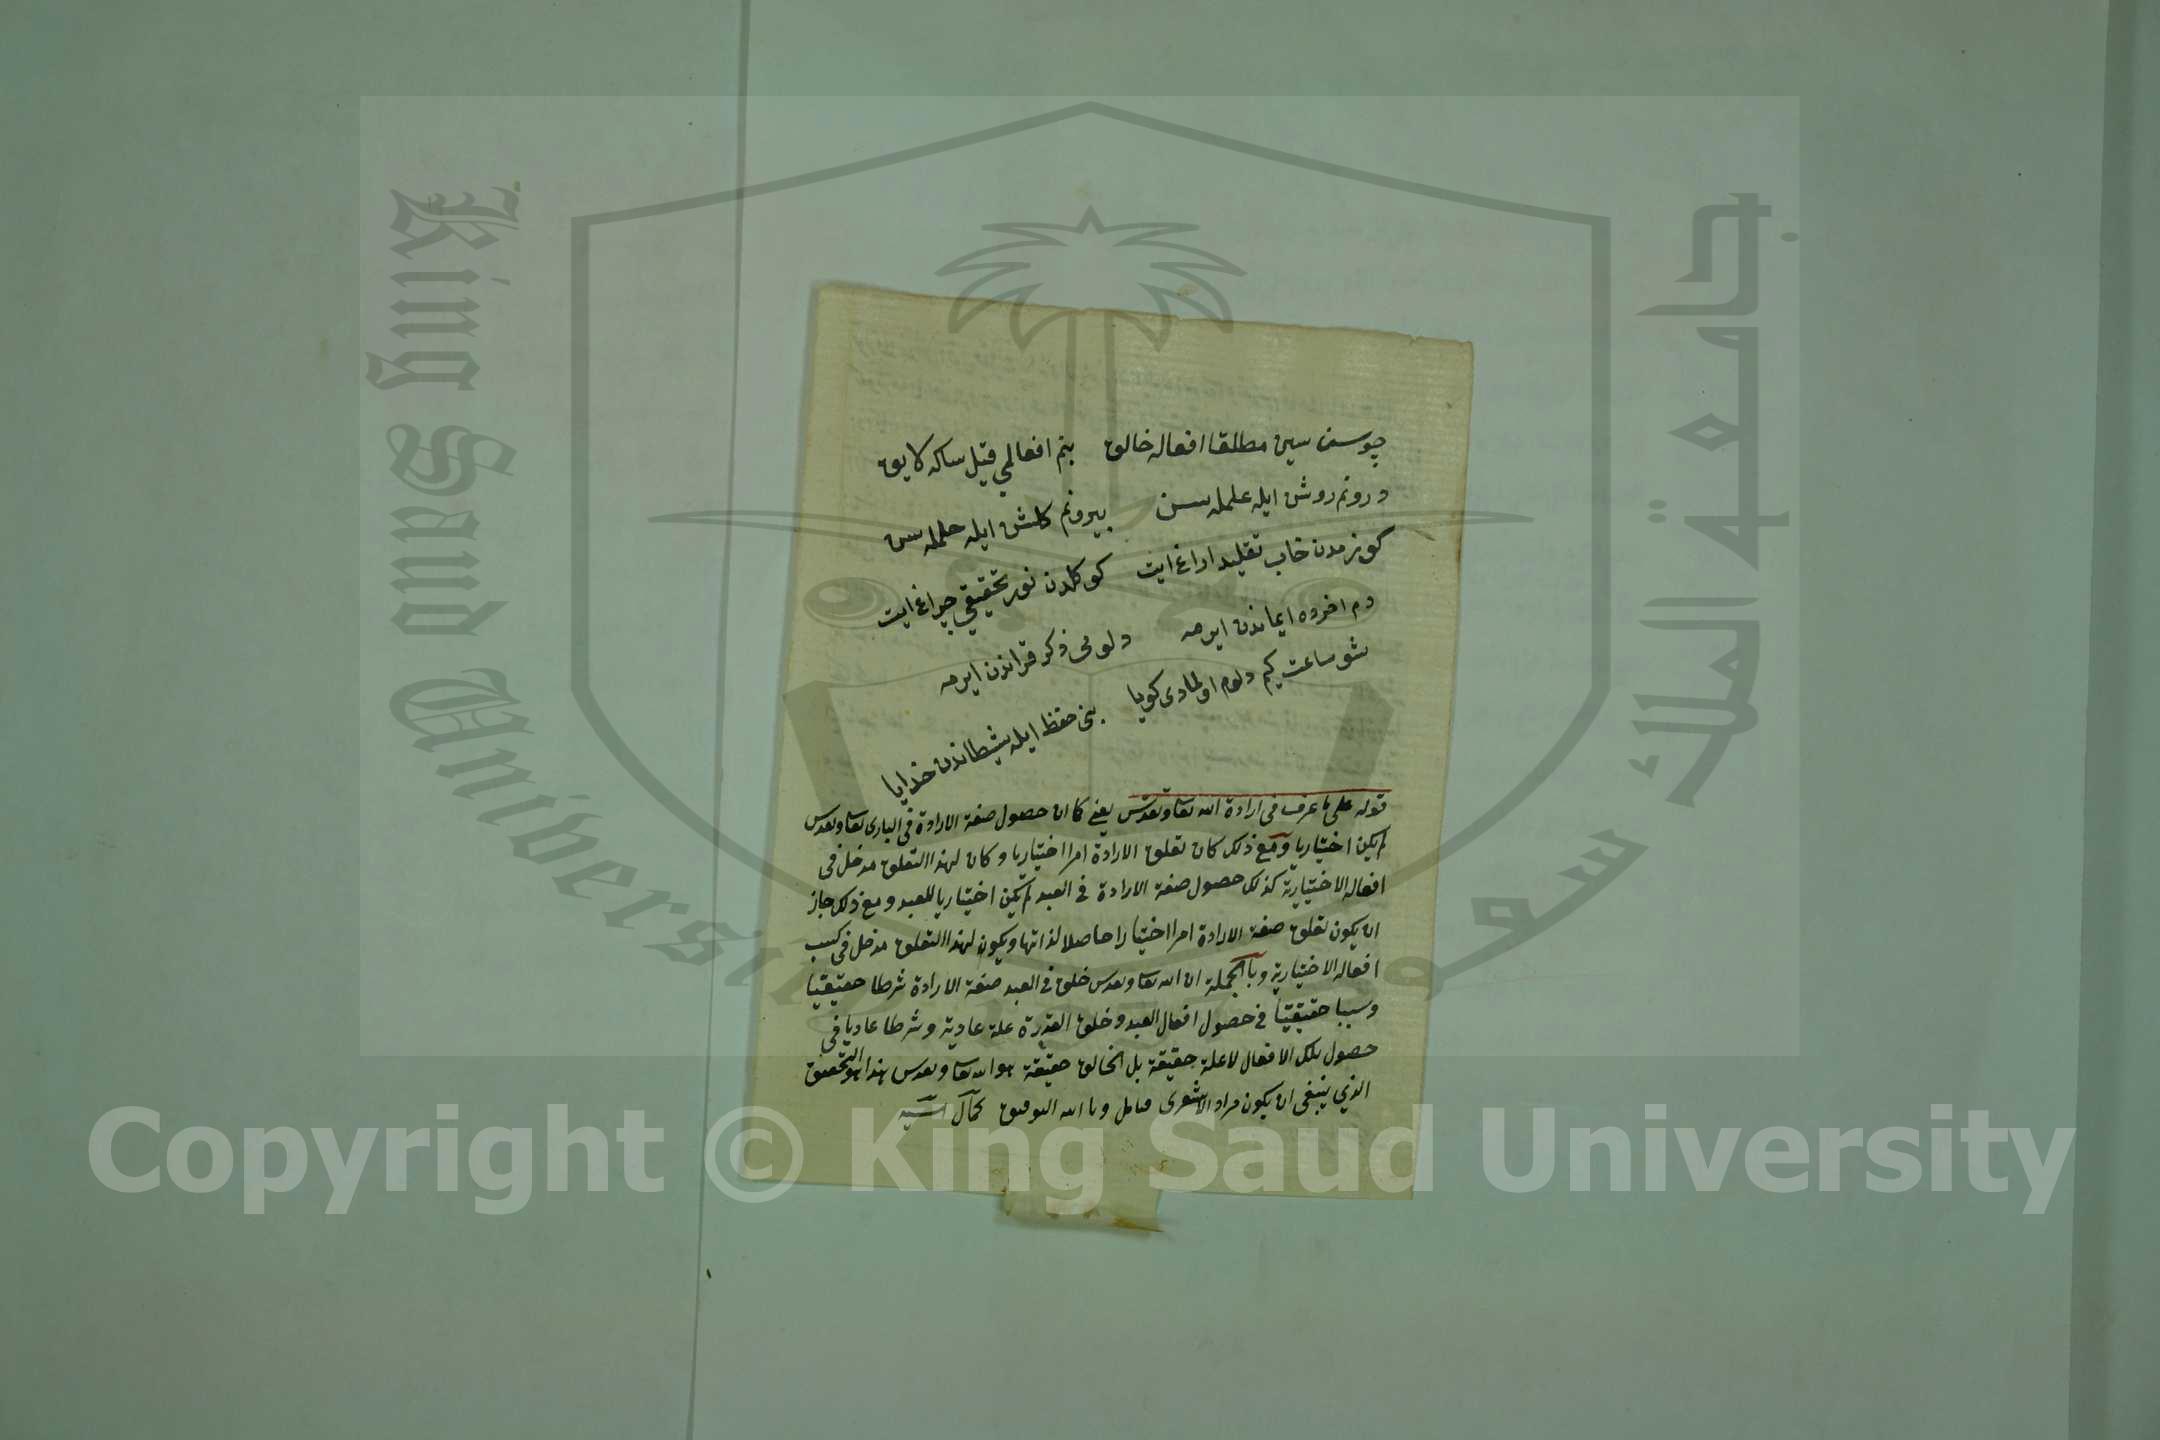 چوسن سین مطلقا افعاله خالق بنم افعالمی قیل ساکه لایق
درونم روشن ایله علمله سن بیرونم کلشن ایله حلمله سن
کوزمدن خاب تقلید اراغ ایت کوکلمدن نور تحقیقی چراغ ایت
دم اخرده ایماندن ایرمه دلومی ذکر قراندن ایرمه
شو ساعت کیم دلوم اولمادی کویا بنی حفظ ایله شیطاندن خدایا
قوله علی ما عرف فی ارادة الله تعا وتقدس یعنی کما ان حصول صفة الارادة فی الباری تعا وتقدس
لم یکن اختیاریا ومع ذلک کان تعلق الارادة امرا اختیاریا وکان لهذا التعلق مدخل فی
افعاله الاختیاریة کذلک حصول صفة الارادة فی العبد لم یکن اختیاریا للعبد ومع ذلک جاز
ان یکون تعلق صفة الارادة امرا اختیارا حاصلا لذاتها ویکون لهذا التعلق مدخل فی کسب
افعاله الاختیاریة وبا الجملة ان الله تعا وتقدس خلق فی العبد صفة الارادة شرطا حقیقیا
وسببا حقیقیا فی حصول افعال العبد وخلق القدرة علة عادیة وشرطا عادیا فی
حصول تلک الافعال لا علة حقیقة بل الخالق حقیقة هو الله تعا وتقدس هذا هو التحقیق
الذی ینبغی ان یکون مراد الاشعری فتامل وبا الله التوفیق کمال
King Saud University
جامعة الملك سعود
1957
Copyright © King Saud University